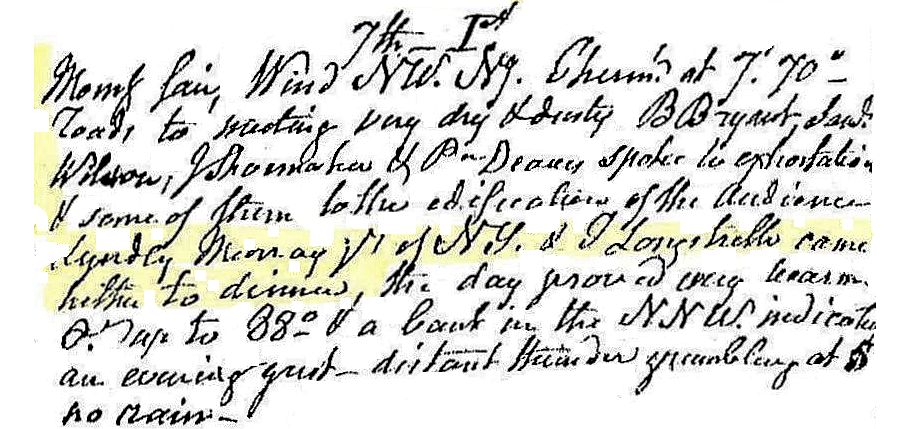 7th - 1st
Morng fair, Wind NW. Ny. Therm. at 7. 70°-
Roads to meeting very dry & dusty B Bryant,
Wilson, J Shoemaker & Deaves spoke in exhortation
& some of them to the edification of the Audience
Lyndly Murray Jr of N.Y. & J Longstreth came
hither to dinner, the day proved very warm
up to 88° & a bank in the NNW. indicates
an evening gust - distant thunder grumbling at 8
no rain -